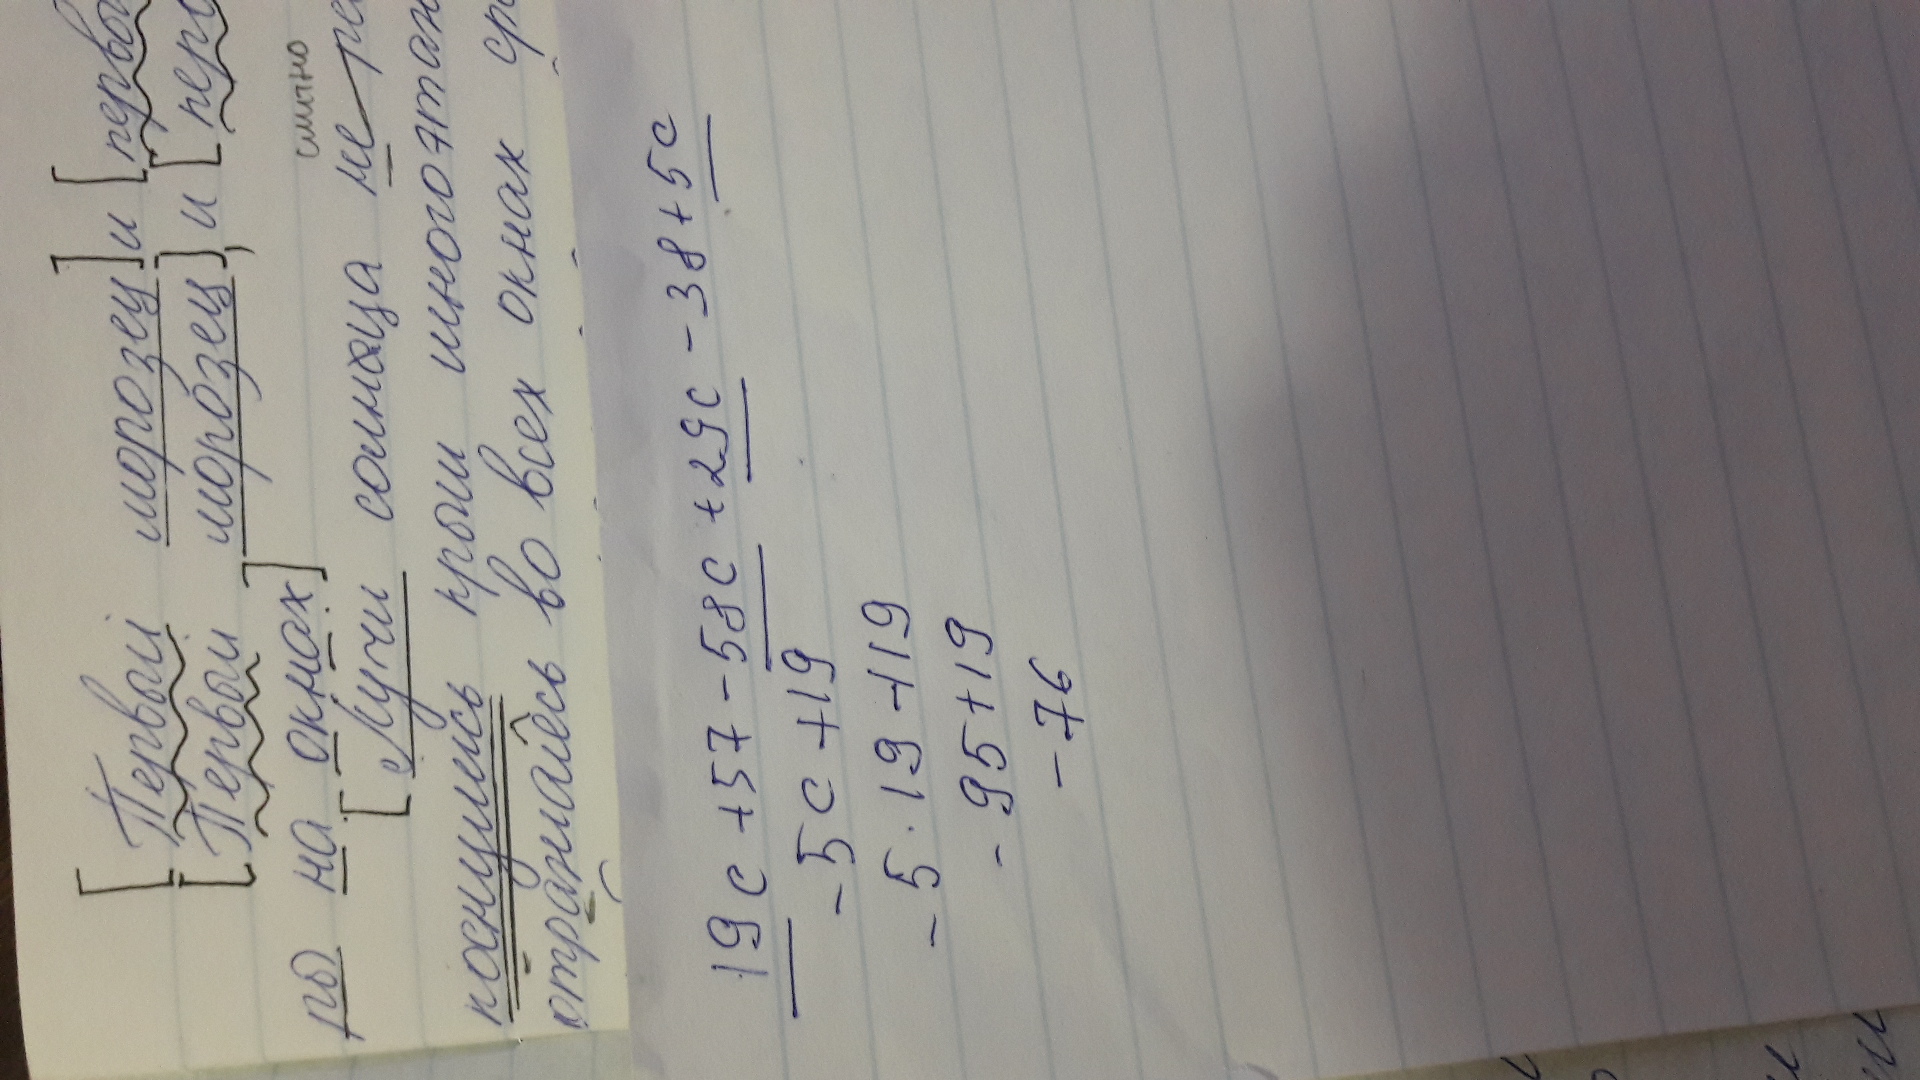 [Первый морозец] и [первы
[Первый морозец], и [перв
ры на окнах]
слитно
[Лучи солнца не
коснулись крыш многоэтаж
отразились во всех окнах
19c + 57 - 58c + 29c - 38 + 5c
-5c + 19
-5 · 19 + 19
-95 + 19
-76